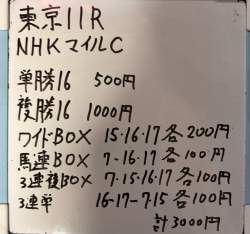 東京11R
NHKマイルC
単勝16 500円
複勝16 1000円
ワイドBOX 15・16・17 各200円
馬連BOX 7・16・17 各100円
3連複BOX 7・15・16・17 各100円
3連単 16-17-7・15 各100円
計3000円